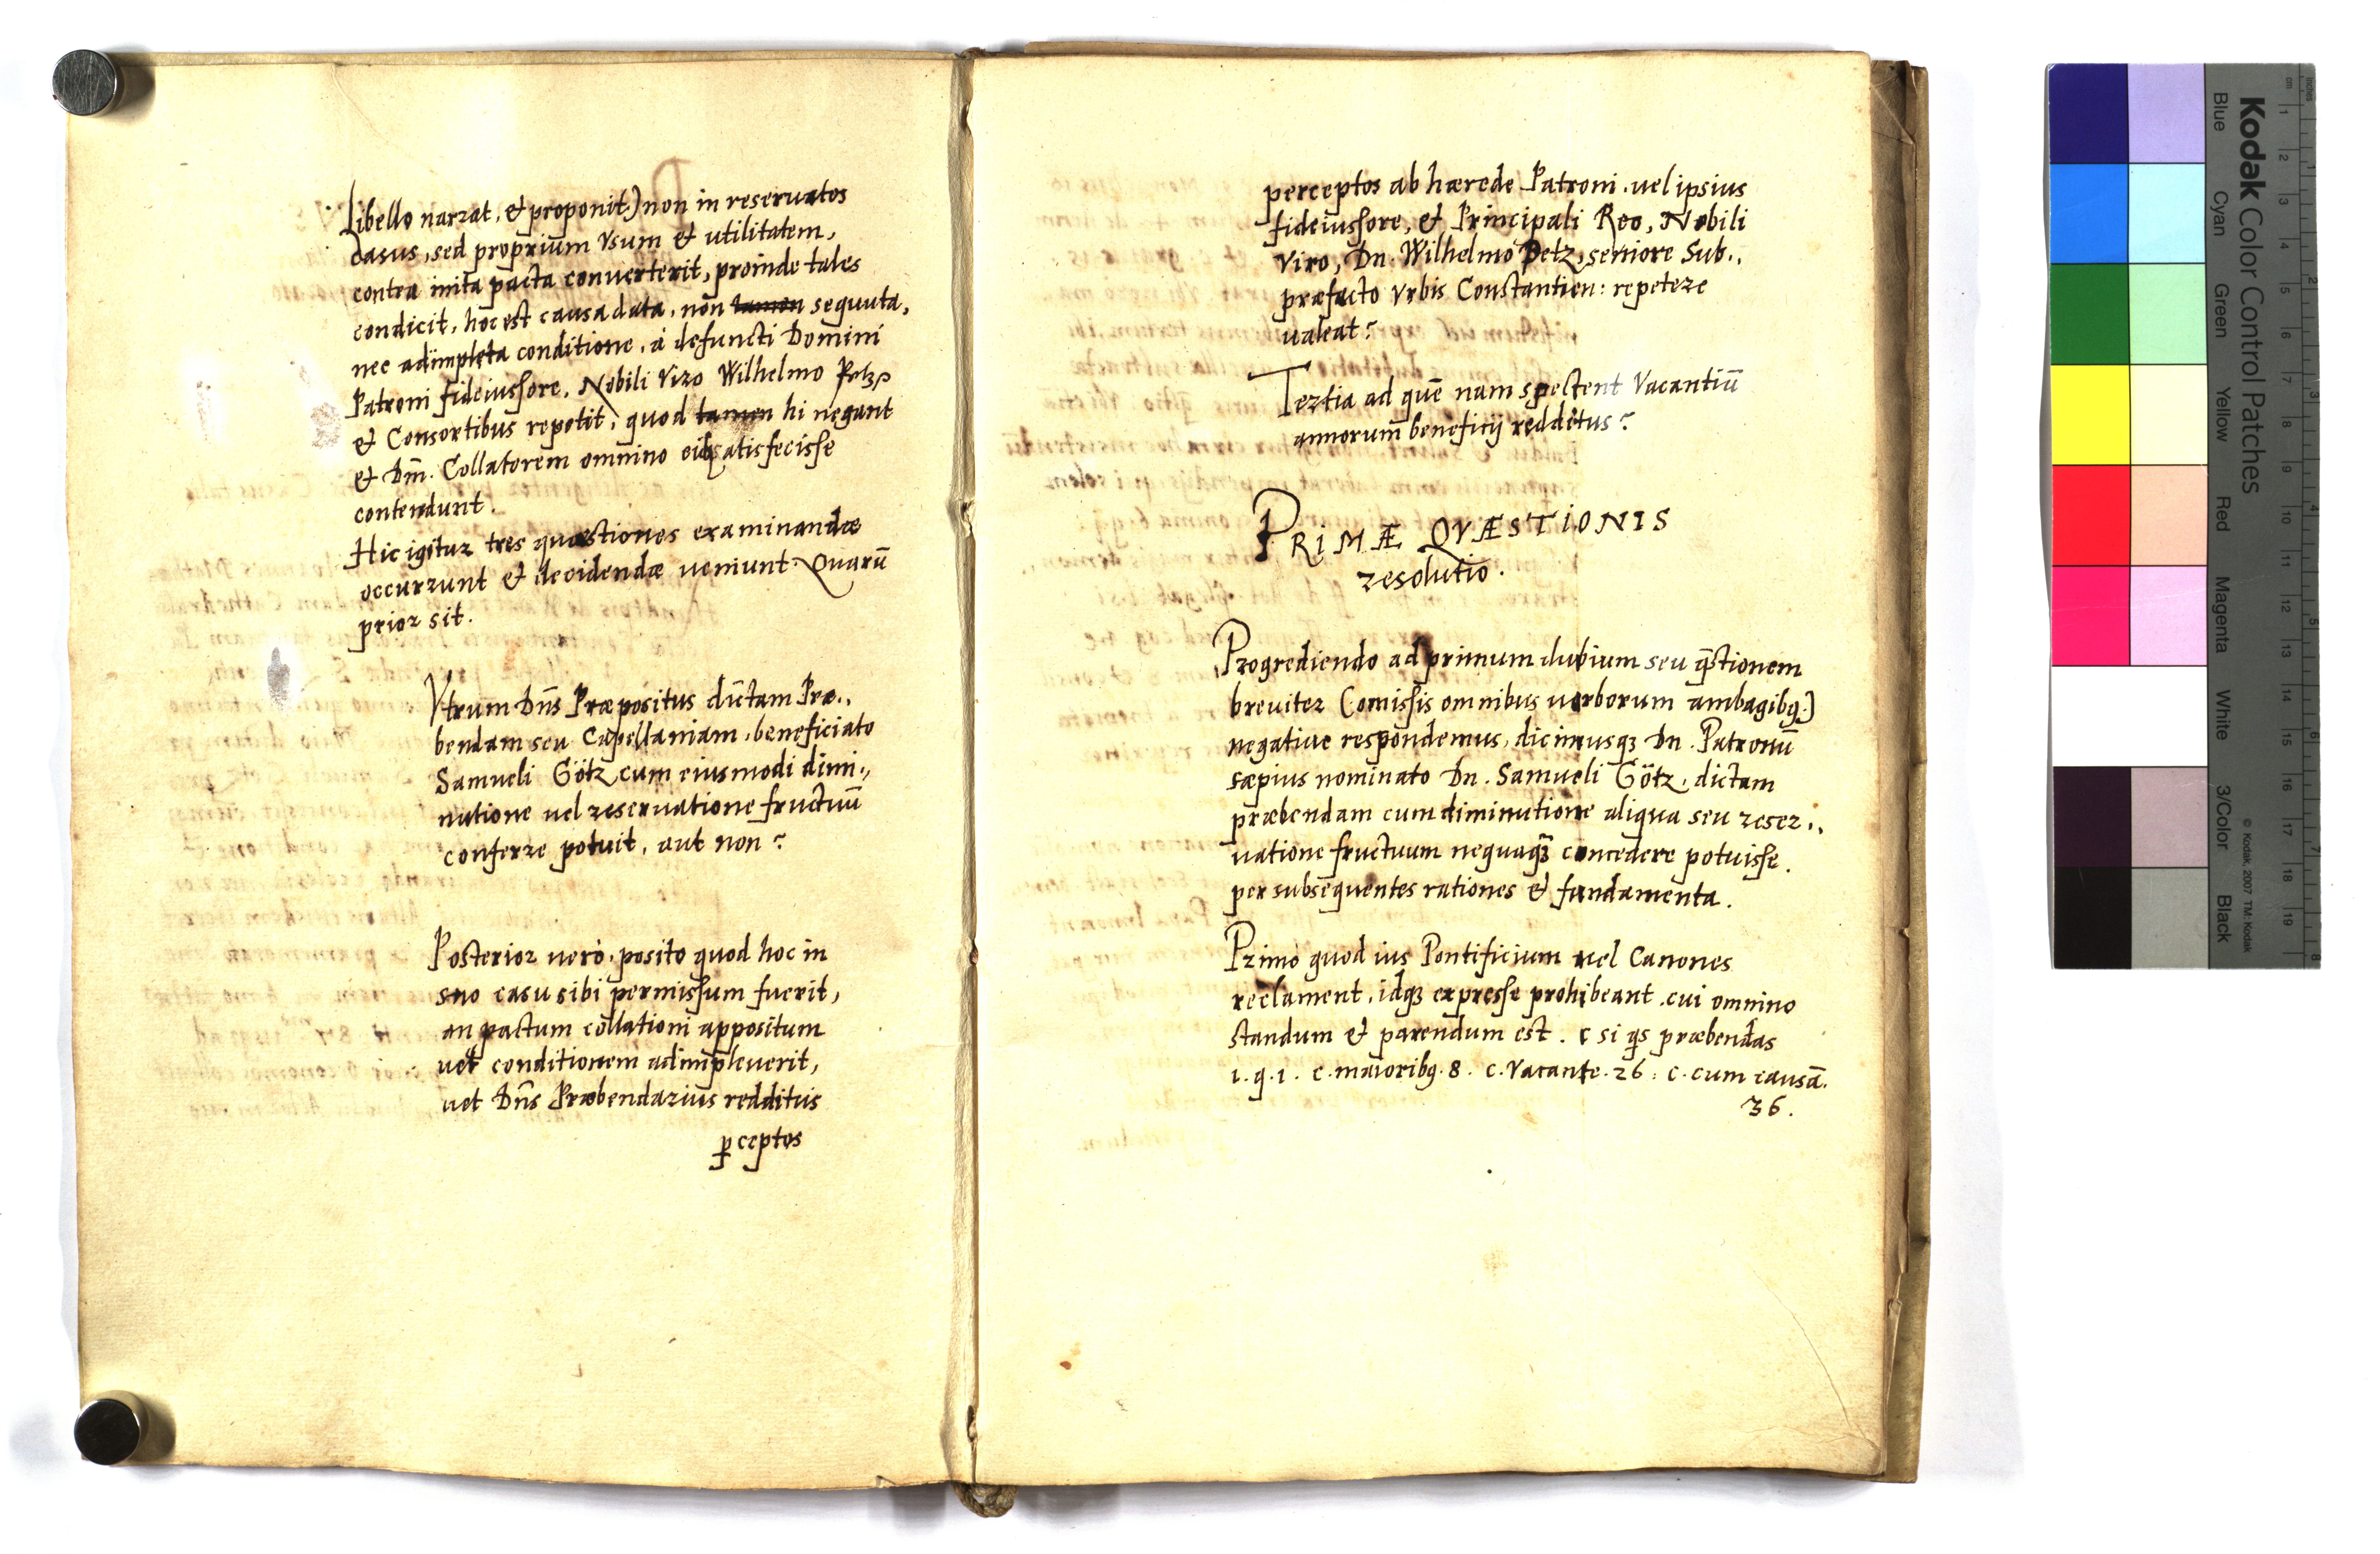 Libello narrat, et proponit) non in reservatos
casus, sed proprium vsum et utilitatem,
contra inita pacta converterit, proinde tales
condicit, hoc est causa data, non tamen sequuta,
nec adimpleta conditione, à defuncti Domini
Patroni fideiussore, Nobili Viro Wilhelmo Petz
et Consortibus repetit, quod tamen hi negant
et Dm̄. Collatorem omnino satisfecisse
contendunt.
Hic igitur tres quæstiones examinandæ
occurrunt et decidendæ veniunt. Quarū
prior sit.
Vtrum Dn̄s Præpositus dictam Præ„
bendam seu Capellaniam, beneficiato
Samueli Götz cum eiusmodi dimi„
nutione uel reseruatione fructuū
conferre potuit, aut non?
Posterior uerò, posito quod hoc in
suo casu sibi permissum fuerit,
an pactum collationi appositum
uel conditionem adimpleuerit,
uel Dn̄s Præbendarius redditus
ꝑceptos
perceptos ab hærede Patroni, uel ipsius
fideiussore, et Principali Reo, Nobili
Viro, Dn. Wilhelmo Petz, seniore Sub„
præfecto Vrbis Constantien: repetere
ualeat?
Tertia ad quē nam spectent Vacantiū
annorum beneficij redditus?
PRIMÆ QVÆSTIONIS
resolutio.
Progrediendo ad primum dubium seu q̄stionem
breuiter (omissis omnibus uerborum ambagibq;)
negatiue respondemus, dicimusqꝫ Dn. Patronū
sæpius nominato Dn. Samueli Götz, dictam
præbendam cum diminutione aliqua seu reser„
uatione fructuum nequaqꝫ concedere potuisse.
per subsequentes rationes et fundamenta.
Primò quod ius Pontificium uel Canones
reclament, idqꝫ expresse prohibeant, cui omnino
standum et parendum est. c si q̄s præbendas
1. q. 1. c. maioribq. 8. c. Vacante. 26. c. cum causā.
36.
Kodak Color Control Patches
Blue Cyan Green Yellow Red Magenta White 3/Color Black
© Kodak, 2007 TM: Kodak
cm 1 2 3 4 5 6 7 8 9 10 11 12 13 14 15 16 17 18 19
inches 1 2 3 4 5 6 7 8